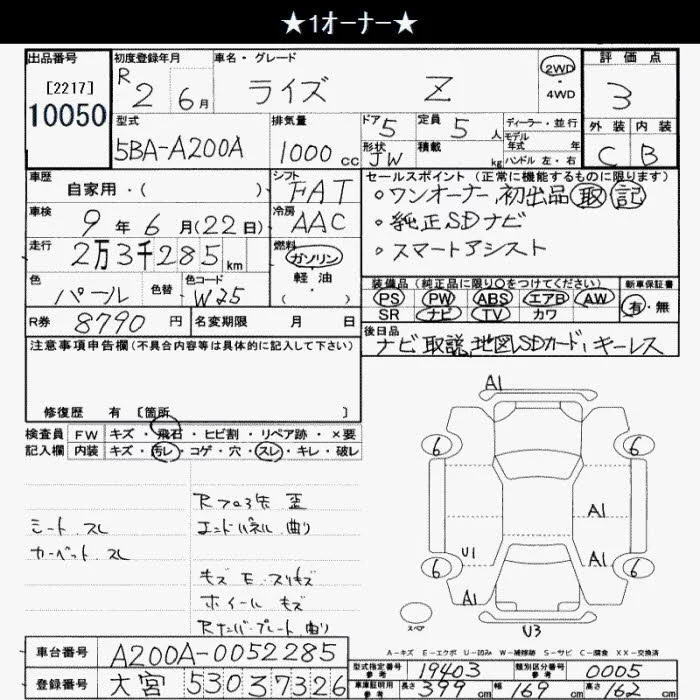 ★1オーナー★
出品番号
[2217]
10050
初度登録年月
R 2 6月
車名・グレード
ライズ Z
2WD
・4WD
評価点
3
型式
5BA-A200A
排気量
1000cc
ドア 5
形状 JW
定員 5人
積載 kg
ディーラー・並行
モデル年式 年
ハンドル 左・右
外装 内装
C B
車歴
自家用・( )
シフト
FAT
車検
9年6月(22日)
冷房
AAC
走行
2万3千285km
燃料
ガソリン
軽・油
・( )
色
パール
色替
色コード
W25
R券 8790円
名変期限 月 日
セールスポイント(正常に機能するものに限ります)
○ワンオーナー 初出品 取 記
○純正SDナビ
○スマートアシスト
装備品(純正品に限り○をつけてください)
新車保証書
PS PW ABS エアB AW
SR ナビ TV カワ
有・無
後日品
ナビ取説,地図SDカード,キーレス
注意事項申告欄(不具合内容等は具体的に記入して下さい)
修復歴 有 〔箇所 〕
検査員 FW キズ・飛石・ヒビ割・リペア跡・×要
記入欄 内装 キズ・汚レ・コゲ・穴・スレ・キレ・破レ
シート スレ
カーペット スレ
Rフロア歪
エンドパネル 曲り
キズ E スリキズ
ホイール キズ
Rナンバープレート 曲り
A1
6 6
A1
U1 A1
6 6
A1
スペア
U3
A-キズ E-エクボ U-凹み W-補修跡 S-サビ C-腐食 XX-交換済
車台番号 A200A-0052285
登録番号 大宮 530 37326
型式指定番号 参考 19403
類別区分番号 参考 0005
車庫証明用 参考 長さ 399cm 幅 169cm 高さ 162cm